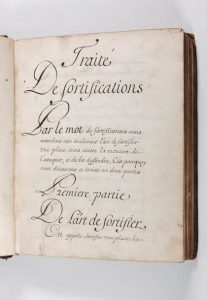 Traité
De fortifications
Par le mot de fortifications nous
entendons non seulement l'art de fortifier
une place mais encore la maniere de
l'attaquer, et de la deffendre, C'est pourquoy
nous diviserons ce traitté en deux parties
Premiere partie
De l'art de fortifier
On appelle fortifier une place la